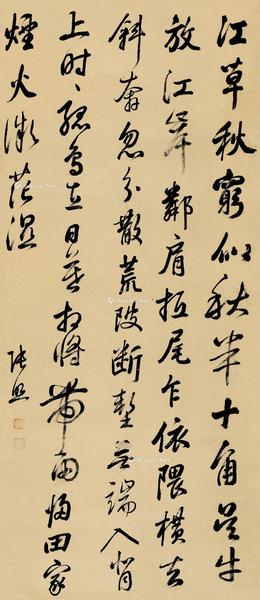 江草秋窮似秋半十角吳牛
放江岸鄰肩抵尾乍依隈橫去
斜奔忽分散荒陂斷塹無端入背
上时〻孤鳥立日暮相將帶雨歸田家
煙火微茫溼
張照